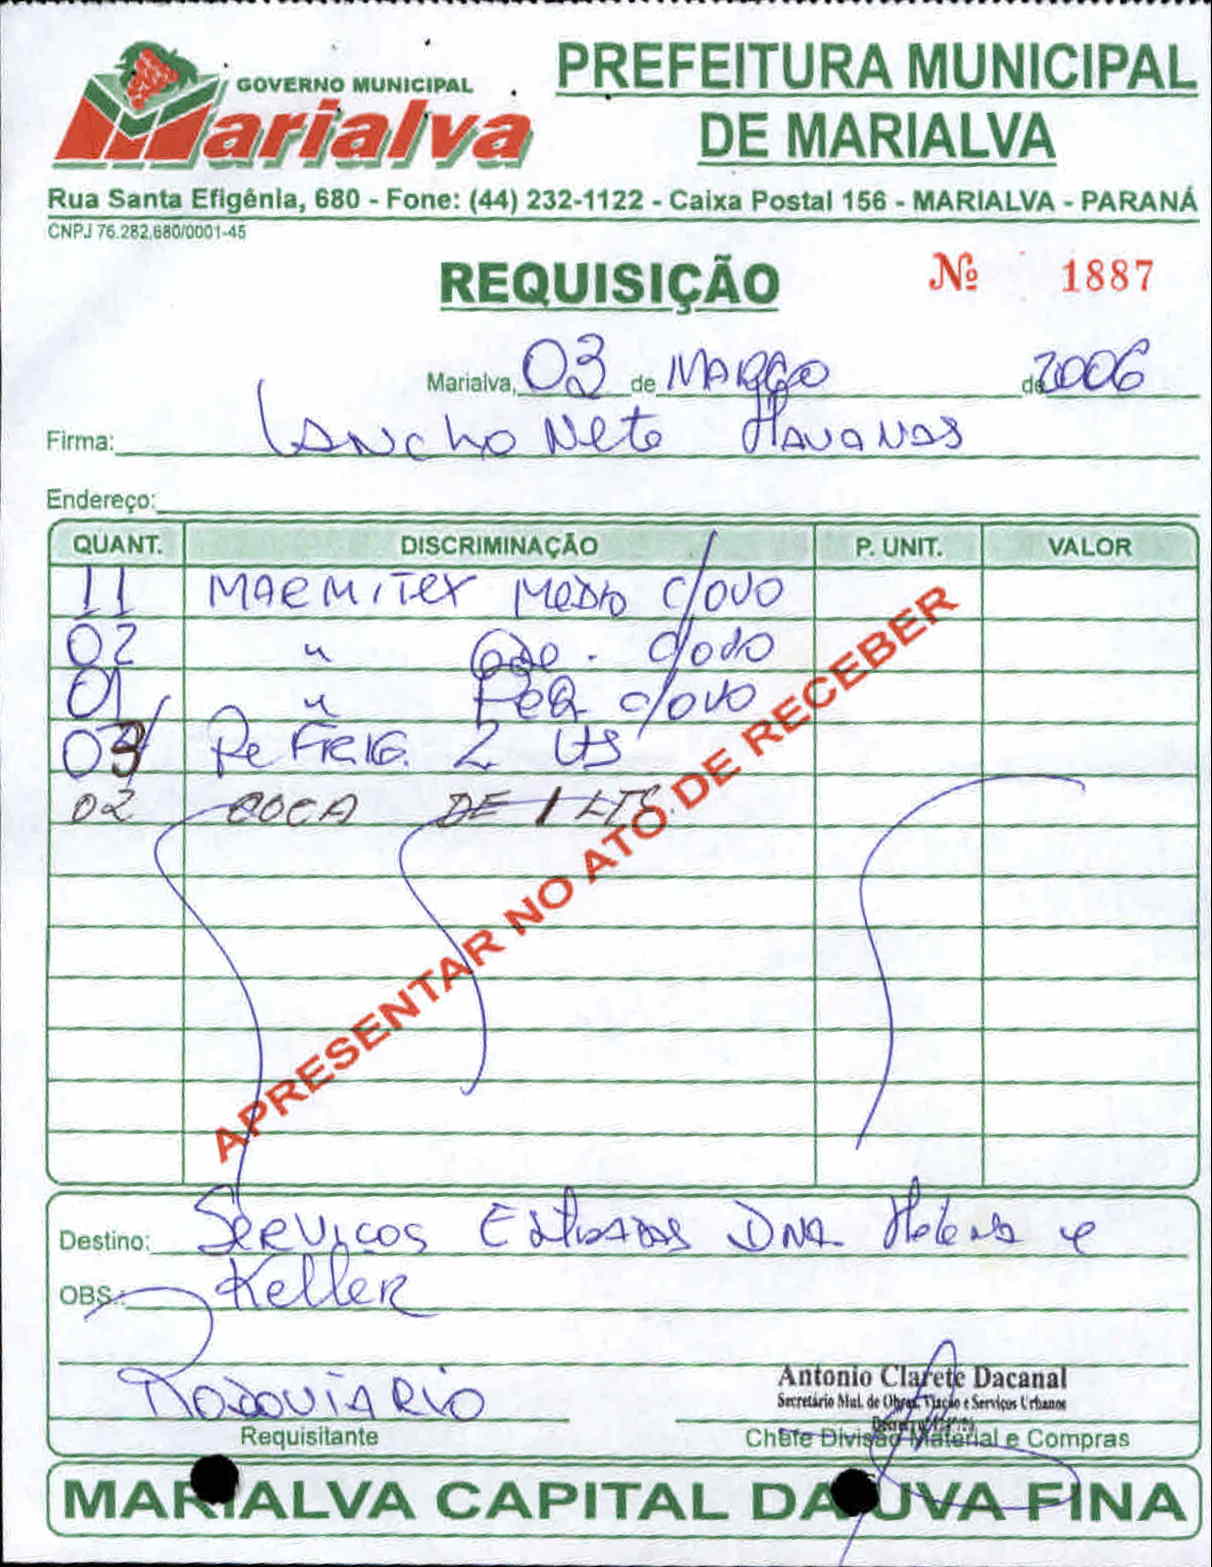 GOVERNO MUNICIPAL
Marialva
PREFEITURA MUNICIPAL
DE MARIALVA
Rua Santa Efigênia, 680 - Fone: (44) 232-1122 - Caixa Postal 156 - MARIALVA - PARANÁ
CNPJ 76.282.680/0001-45
REQUISIÇÃO
Nº 1887
Marialva, 03 de MARÇO de 2006
Firma: LANchoNete HAVANAS
Endereço:
QUANT. DISCRIMINAÇÃO P. UNIT. VALOR
11 MARMITEX MEDIO C/OVO
02 " GDE. C/OVO
01 " PeQ C/OVO
03 ReFRIG. 2 LTS
02 COCA DE 1 LTS.
APRESENTAR NO ATO DE RECEBER
Destino: SeRViços DNA. Helena e
OBS.: Keller
RODOVIARIO
Requisitante
Antonio Clarete Dacanal
Secretário Mul. de Obras, Viação e Serviços Urbanos
Chefe Divisão Material e Compras
MARIALVA CAPITAL DA UVA FINA